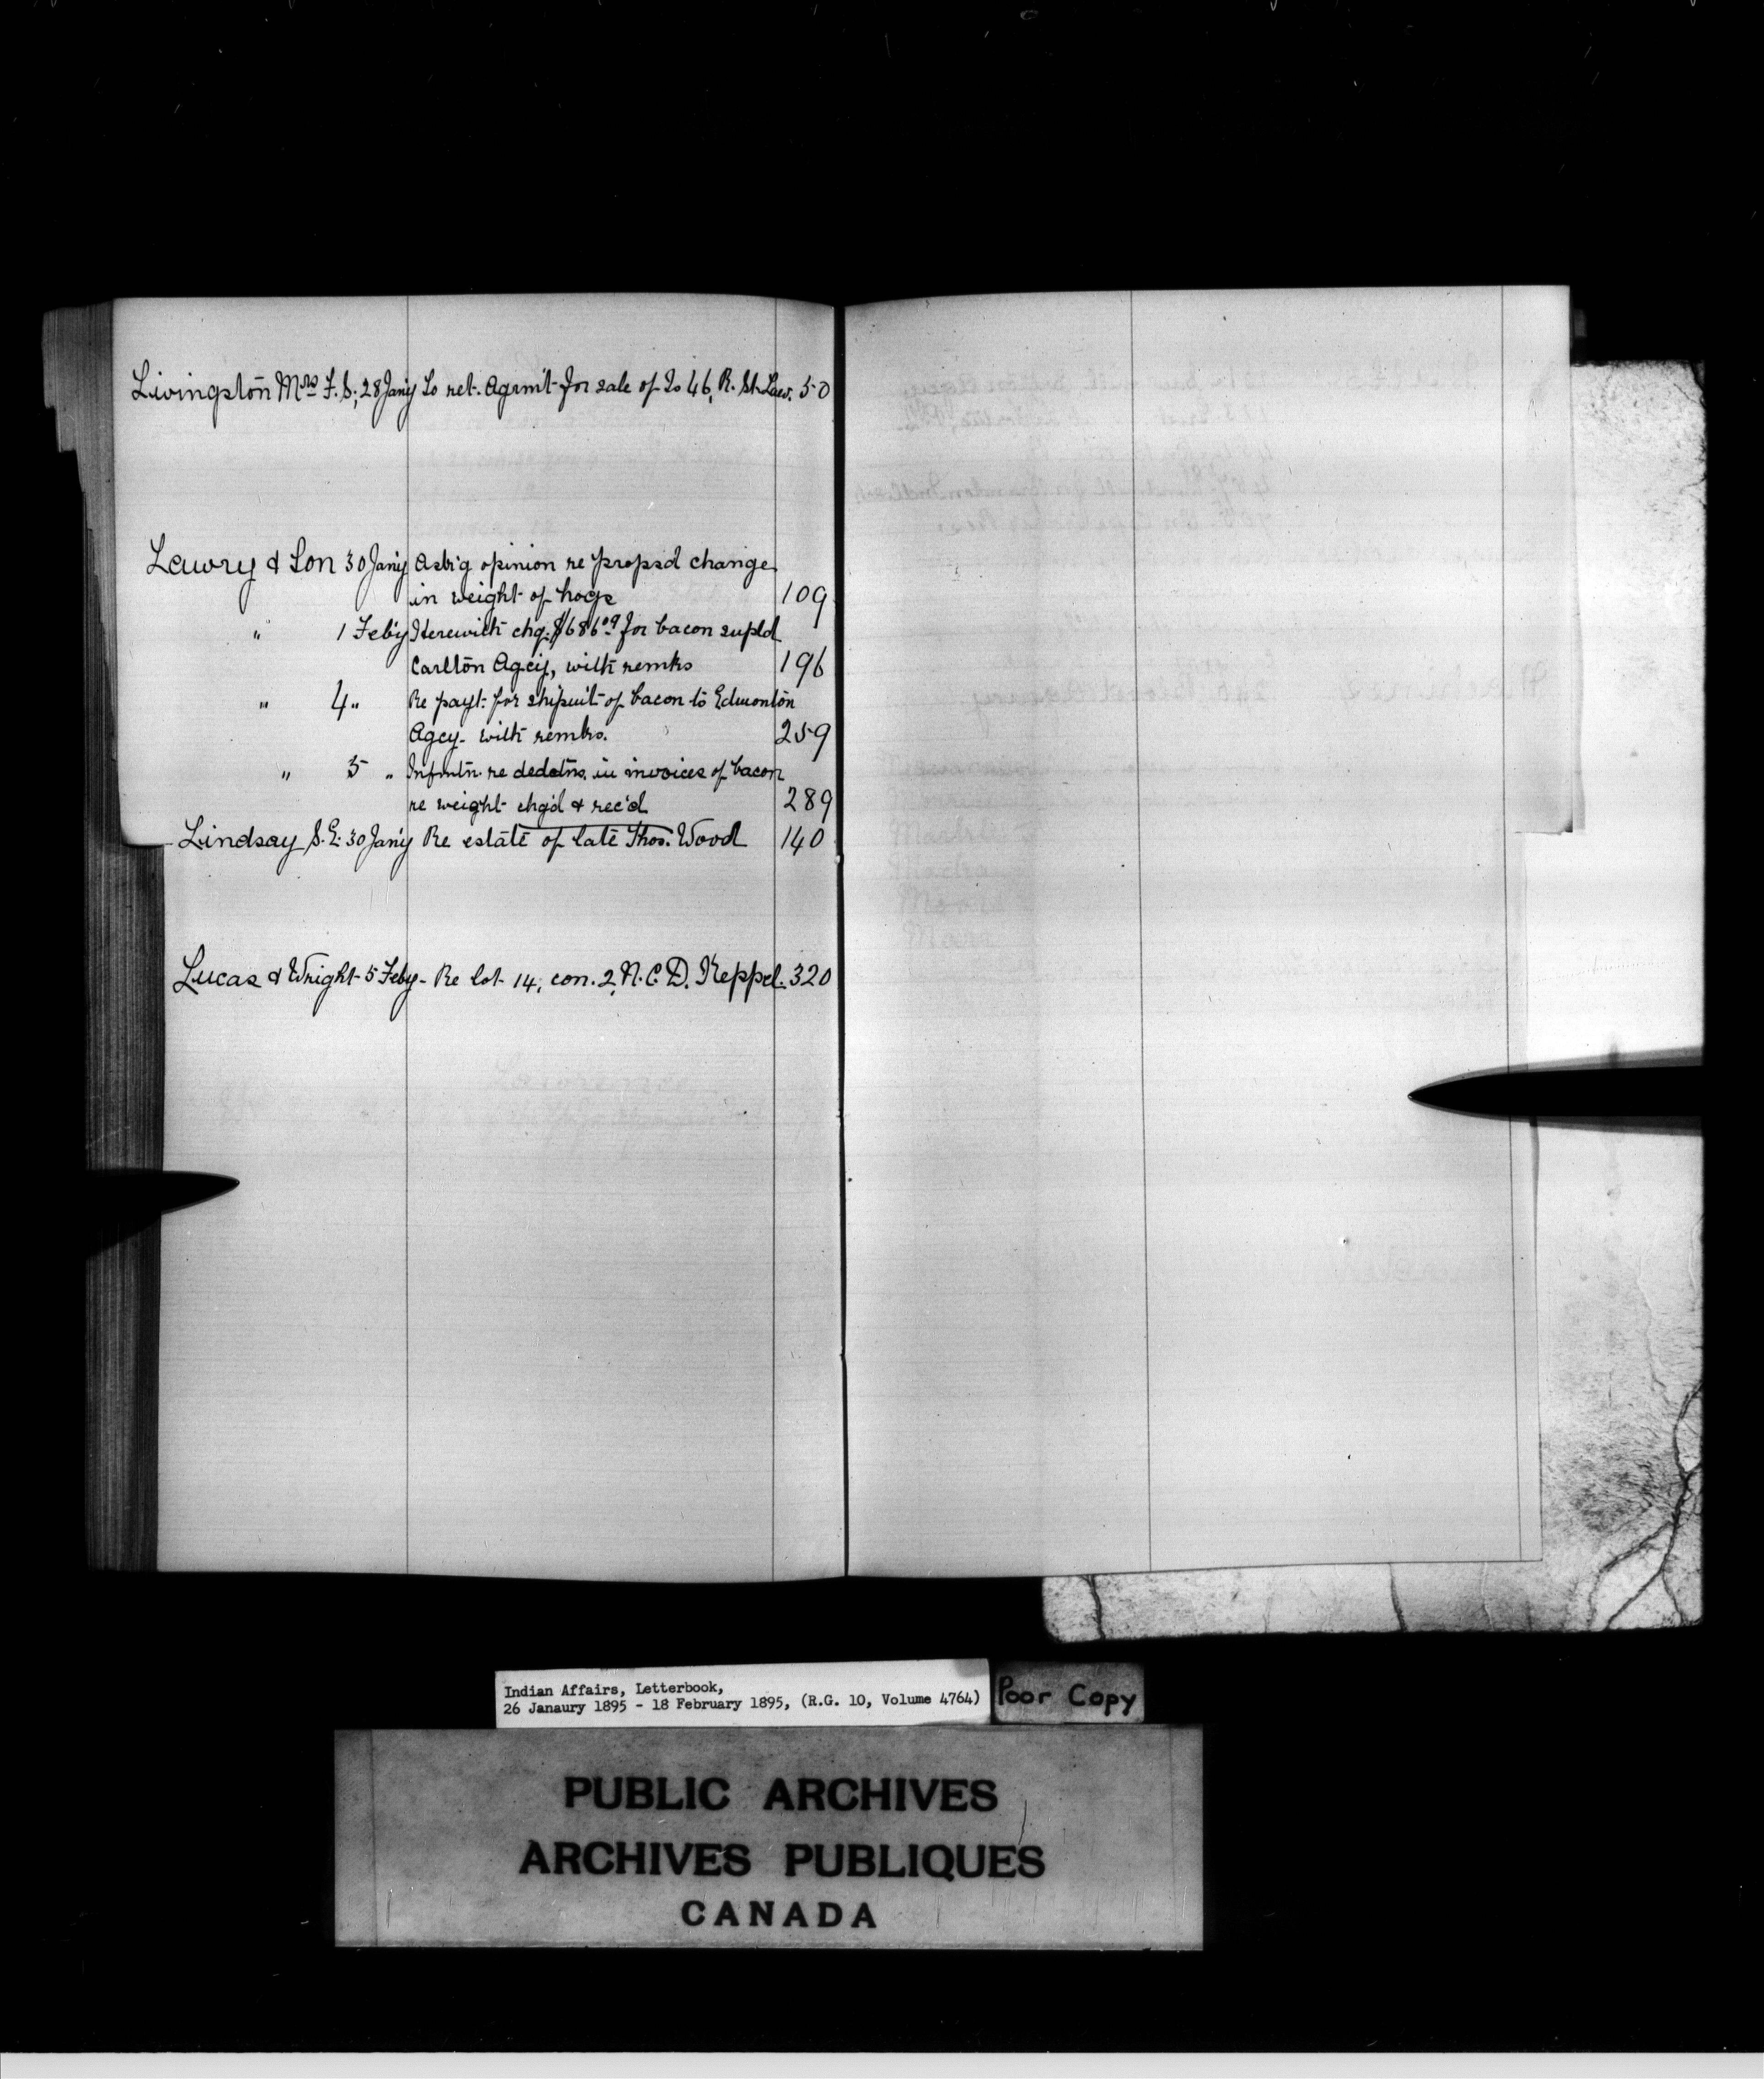 Livingston Mrs F. S; 28 Jan'y To ret. Agrmt for sale of Is 46, R. St. Law. 50
Lawry & Son 30 Jan'y Ask'g opinion re propsd change
in weight of hogs 109
" 1 Feb'y Herewith chq. $686.09 for bacon supld
Carlton Agcy, with remks 196
" 4 " Re payt. for shipmt of bacon to Edmonton
Agcy. with remks. 259
" 5 " Infmtn. re dedctns. in invoices of bacon
re weight chg'd & rec'd 289
Lindsay S. E. 30 Jan'y Re estate of late Thos. Wood 140
Lucas & Wright 5 Feby - Re lot 14, con. 2, N.C.D. Keppel. 320
Indian Affairs, Letterbook,
26 Janaury 1895 - 18 February 1895, (R.G. 10, Volume 4764)
Poor Copy
PUBLIC ARCHIVES
ARCHIVES PUBLIQUES
CANADA